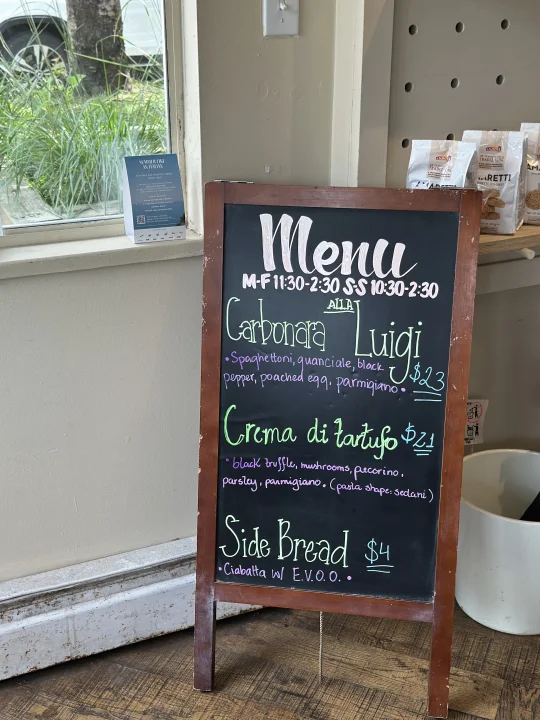 Menu
M-F 11:30-2:30 S-S 10:30-2:30
Carbonara ALLA Luigi
• Spaghettoni, guanciale, black
pepper, poached egg, parmigiano • $23
Crema di tartufo $21
• black truffle, mushrooms, pecorino,
parsley, parmigiano. (pasta shape: sedani)
Side Bread $4
• Ciabatta W/ E.V.O.O. •
ARETTI